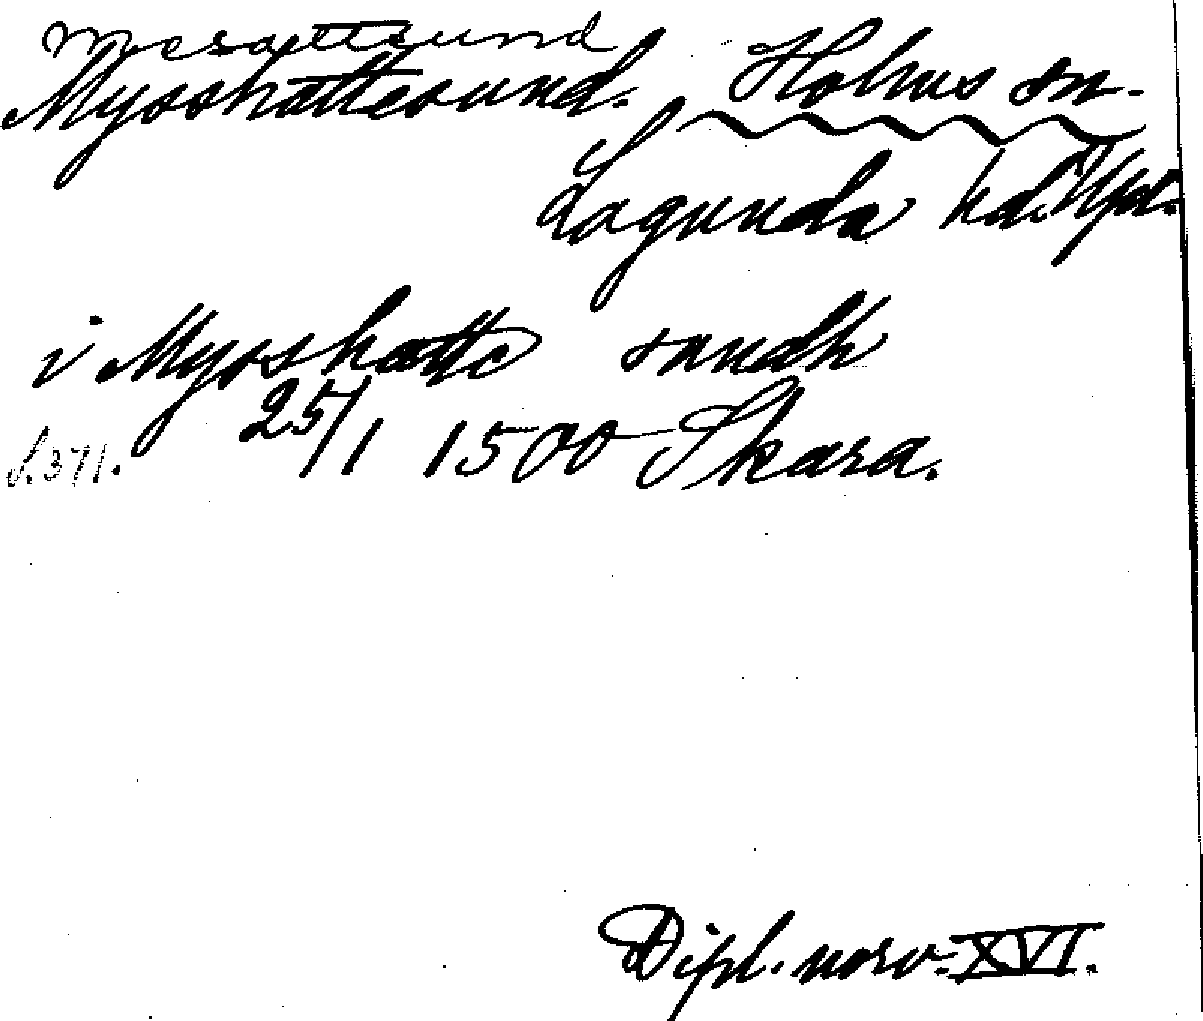 Mesättsund
Mysshattesund. Holms sn.
Lagunda hd. Upl.
i Mysshatte sundh
25/1 1500 Skara.
s. 371.
Dipl. norv. XVI.